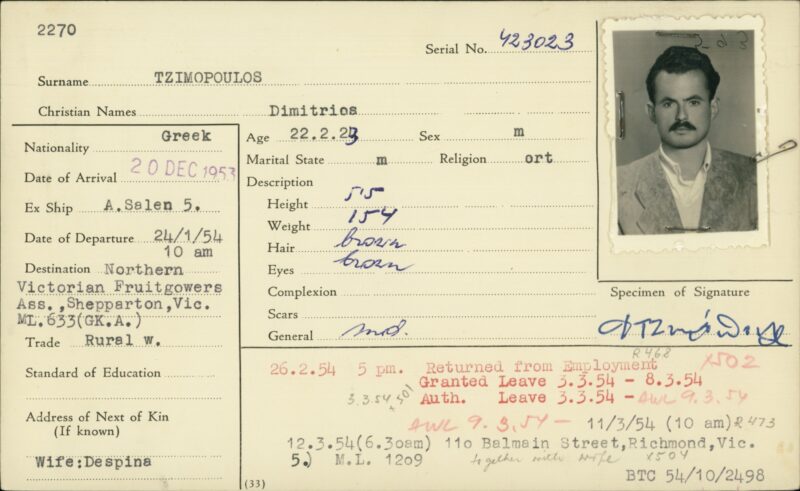 2270
Serial No. 423023
Surname TZIMOPOULOS
Christian Names Dimitrios
Nationality Greek
Date of Arrival 20 DEC 1953
Ex Ship A.Salen 5.
Date of Departure 24/1/54
10 am
Destination Northern
Victorian Fruitgowers
Ass.,Shepparton,Vic.
ML.633(GK.A.)
Trade Rural w.
Standard of Education
Address of Next of Kin
(If known)
Wife:Despina
Age 22.2.23 Sex m
Marital State m Religion ort
Description
Height 5'5
Weight 154
Hair brown
Eyes brown
Complexion
Scars
General md.
Specimen of Signature
R468
26.2.54 5 pm. Returned from Employment X502
Granted Leave 3.3.54 - 8.3.54
3.3.54 x501 Auth. Leave 3.3.54 - AWL 9.3.54
AWL 9.3.54 - 11/3/54 (10 am) R473
12.3.54(6.30am) 110 Balmain Street,Richmond,Vic.
5.) M.L. 1209 together with wife X504
BTC 54/10/2498
(33)